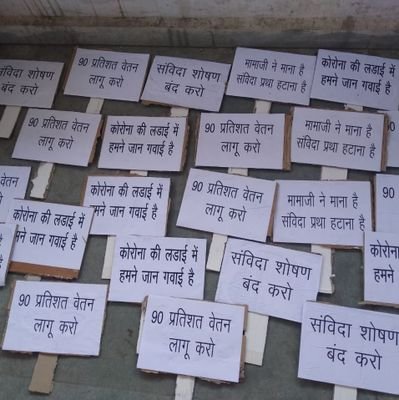 संविदा शोषण
बंद करो
90 प्रतिशत वेतन
लागू करो
संविदा शोषण
बंद करो
मामाजी ने माना है
संविदा प्रथा हटाना है
कोरोना की लडाई में
हमने जान गवाई है
90 प्रतिशत वेतन
लागू करो
कोरोना की लडाई में
हमने जान गवाई है
90 प्रतिशत वेतन
लागू करो
मामाजी ने माना है
संविदा प्रथा हटाना है
वेतन
कोरोना की लडाई में
हमने जान गवाई है
90 प्रतिशत वेतन
लागू करो
मामाजी ने माना है
संविदा प्रथा हटाना है
90
कोरोना की लडाई में
हमने जान गवाई है
कोरोना की लडाई में
हमने जान गवाई है
संविदा शोषण
बंद करो
कोरोना की
हमने जान
90 प्रतिशत वेतन
लागू करो
90 प्रतिशत वेतन
लागू करो
संविदा शोषण
बंद करो